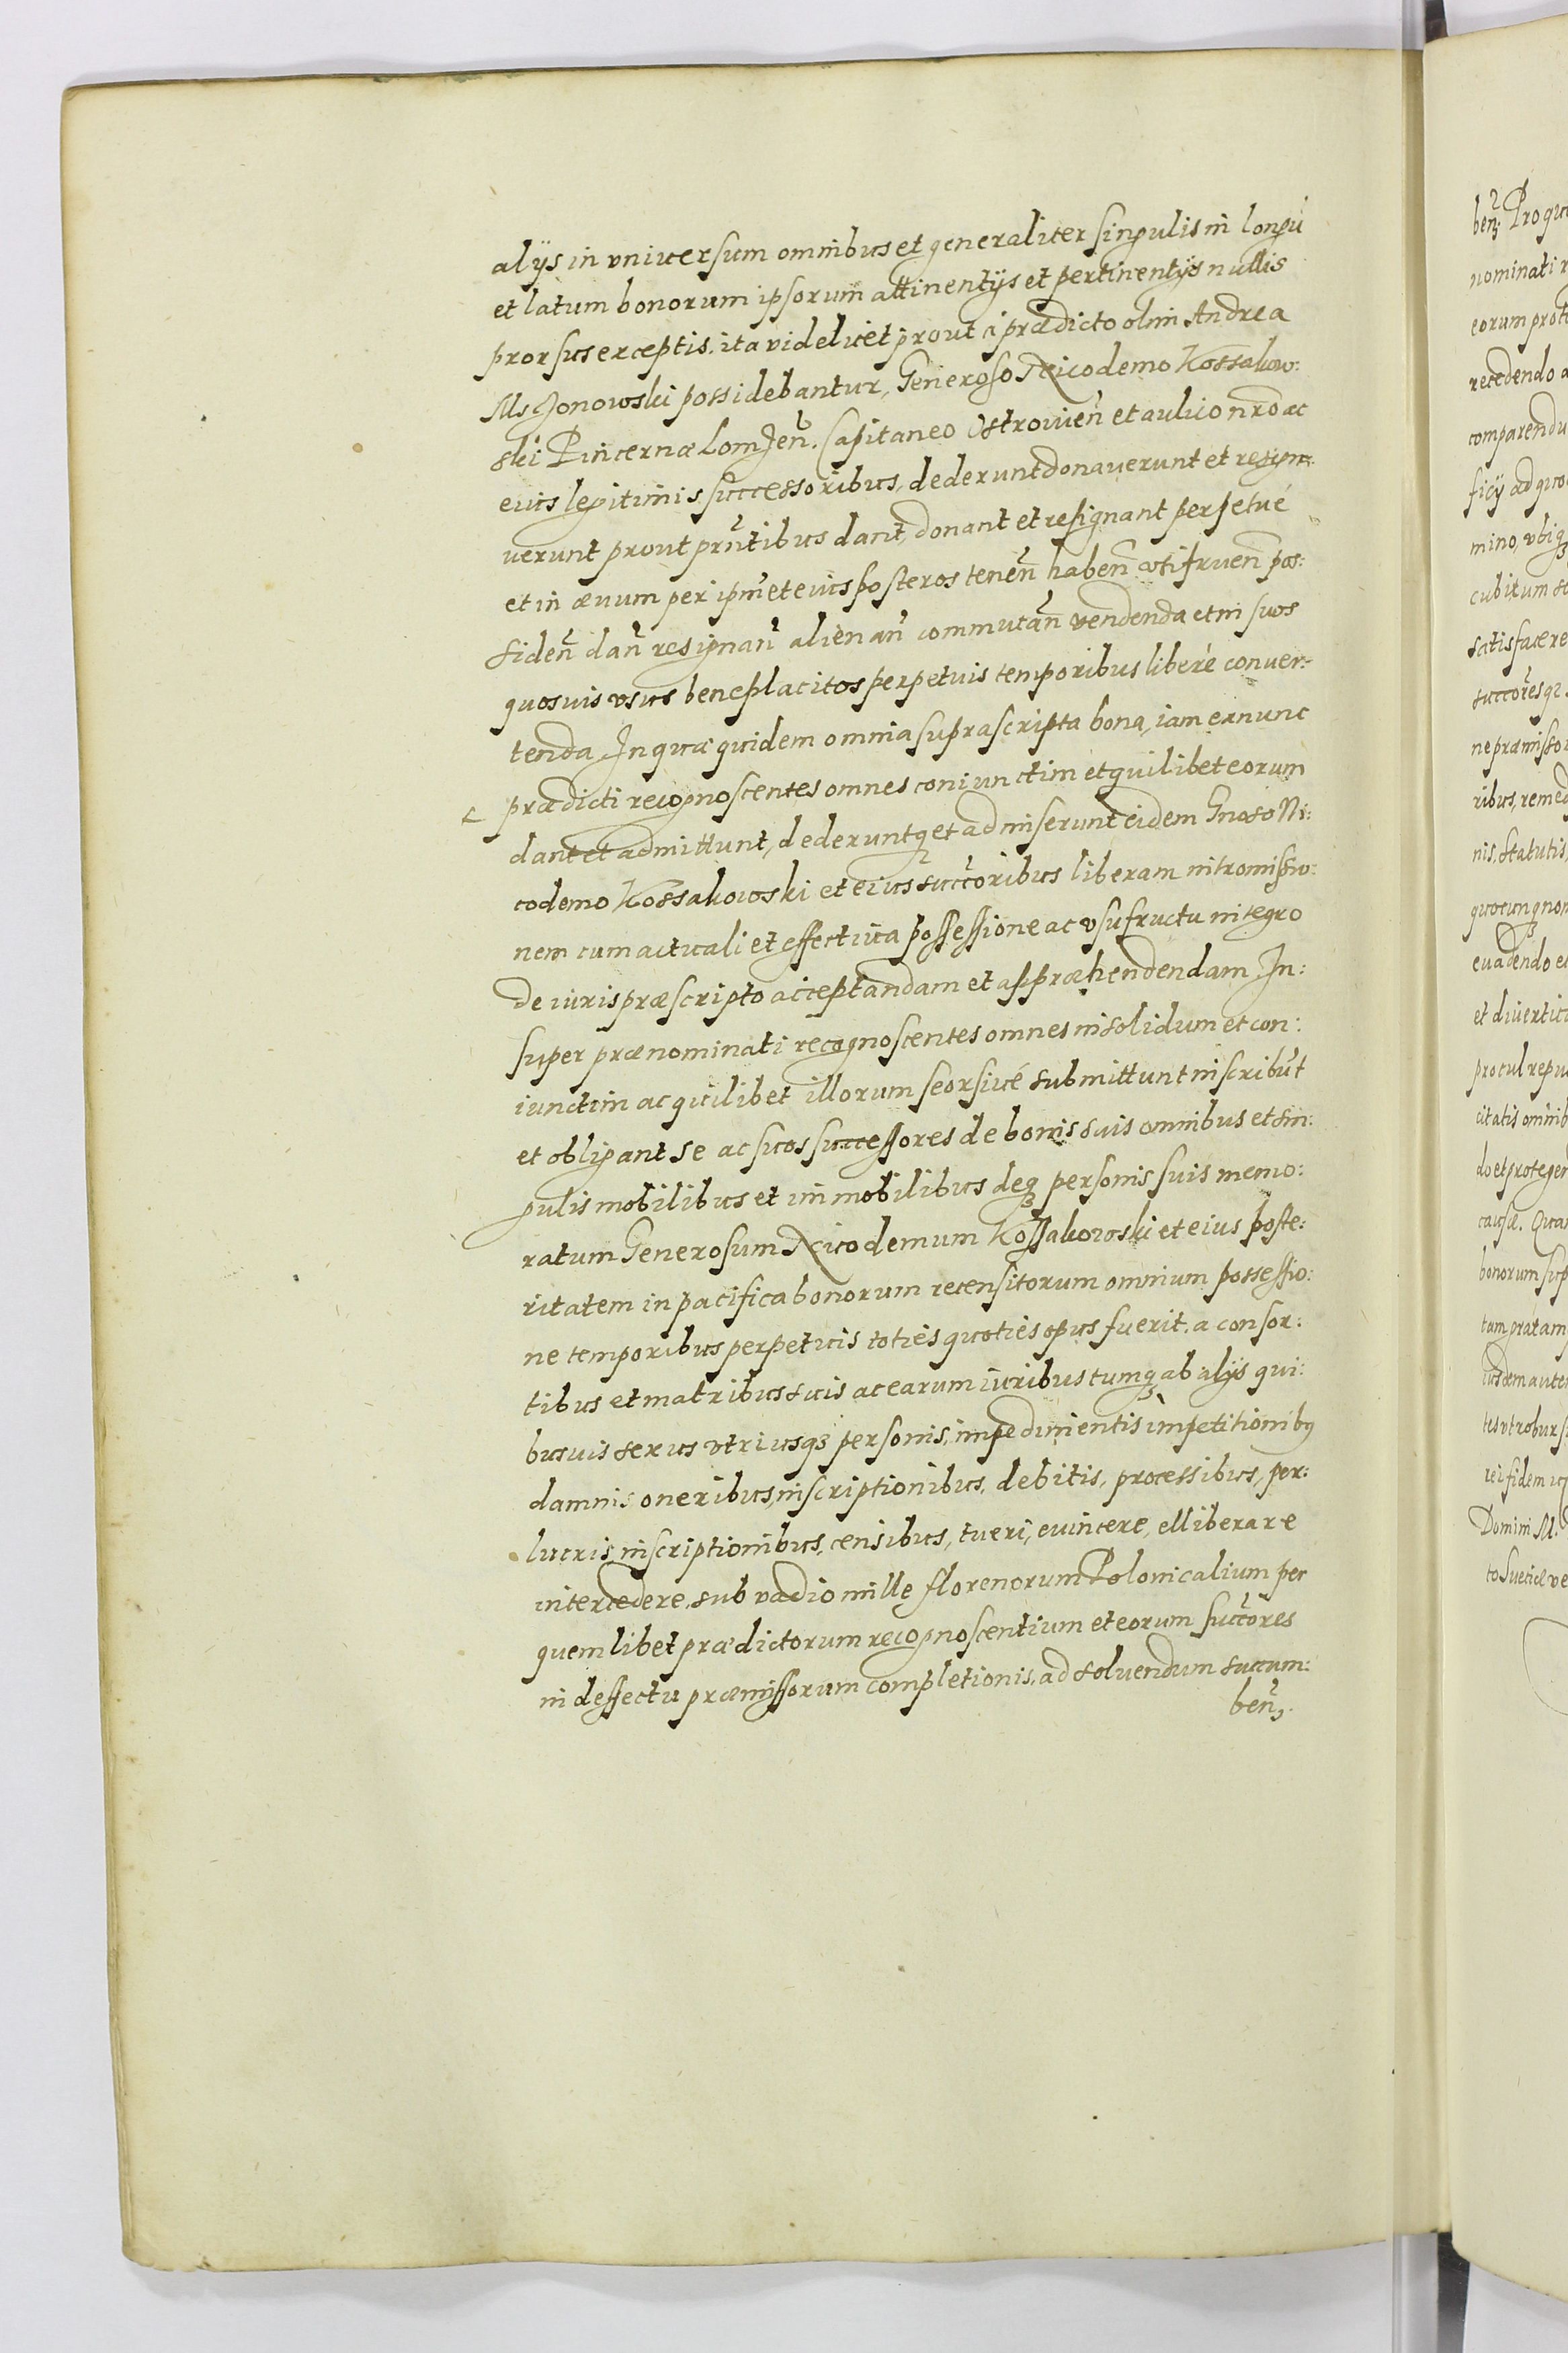 alijs in vniuersum omnibus et generaliter singulis in longū
et latum bonorum ipsorum attinentijs et pertinentijs nullis
prorsus exceptis. ita videlicet prout à prædicto olim Andrea
Msczonowski possidebantur, Generoso Nicodemo Kossakow:
ski Pincernæ Lomzen̄. Capitaneo Ostrowien̄ et aulico nr̄o ac
eius legitimis successoribus, dederunt donauerunt et resigna:
uerunt prout prn̄tibus dant, donant et resignant perpetué
et in æuum per ipm̄ et eius posteros tenen̄ haben̄ vtifruen̄ pos:
siden̄ dan̄ resignan̄ alienan̄ commutan̄ vendenda et in suos
quosuis vsus beneplacitos perpetuis temporibus liberè conuer:
tenda In quæ quidem omnia suprascripta bona, iam ex nunc
prædicti recognoscentes omnes coniunctim et quilibet eorum
dant et admittunt, dederuntq; et admiserunt eidem Gnoso Ni:
codemo Kossakowski et eius succōribus liberam intromissio:
nem cum actuali et effectiua possessione ac vsufructu integro
de iuris præscripto acceptandam et appræhendendam In:
super prænominati recognoscentes omnes in solidum et con:
iunctim ac quilibet illorum seorsiué submittunt inscribūt
et obligant se ac suos successores de bonis suis omnibus et sin:
gulis mobilibus et immobilibus deq; personis suis memo:
ratum Generosum Nicodemum Kossakowski et eius poste:
ritatem in pacifica bonorum recensitorum omnium possessio:
ne temporibus perpetuis toties quoties opus fuerit, a consor:
tibus et matribus suis ac earum iuribus tumq; ab alijs qui:
busuis sexus vtriusq; personis, impedimentis impetitionibq
damnis oneribus, inscriptionibus, debitis, processibus, per:
lucris, inscriptionibus, censibus, tueri, euincere, elliberare
intercedere, sub vadio mille florenorum Polonicalium per
quemlibet prædictorum recognoscentium et eorum succōres
in deffectu præmissorum completionis, ad soluendum succum:
ben̄;
ben̄;
nominati
recedendo
mino,
cubitum
satisfacere
ribus,
nis, statutis,
euadendo
procul
causæ.
bonorum
rei fidem
Domini